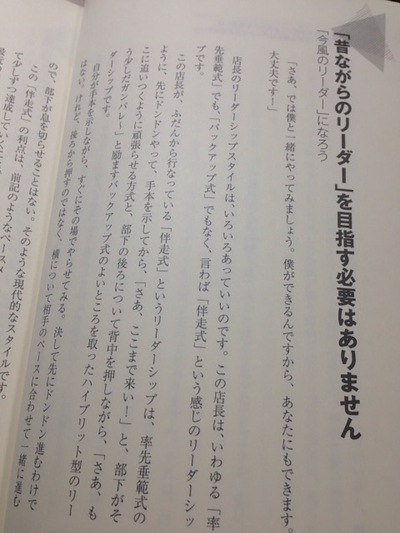 「昔ながらのリーダー」を目指す必要はありません
「今風のリーダー」になろう
「さあ、では僕と一緒にやってみましょう。僕ができるんですから、あなたにもできます。
大丈夫です！」
店長のリーダーシップスタイルは、いろいろあっていいのです。この店長は、いわゆる「率
先垂範式」でも、「バックアップ式」でもなく、言わば「伴走式」という感じのリーダーシッ
プです。
この店長が、ふだんから行なっている「伴走式」というリーダーシップは、率先垂範式の
ように、先にドンドンやって、手本を示してから、「さあ、ここまで来い！」と、部下がそ
こに追いつくように頑張らせる方式と、部下の後ろについて背中を押しながら、「さあ、も
う少しだガンバレー！」と励ますバックアップ式のよいところを取ったハイブリット型のリー
ダーシップです。
自分が手本を示しながら、すぐにその場でやらせてみる。決して先にドンドン進むわけで
はない。けれど、後ろから押すのではなく、横について相手のペースに合わせて一緒に進む
ので、部下が息を切らせることはない。そのような現代的なスタイルです。
この「伴走式」の利点は、前記のようなペースメ
て少しずつ達成していく